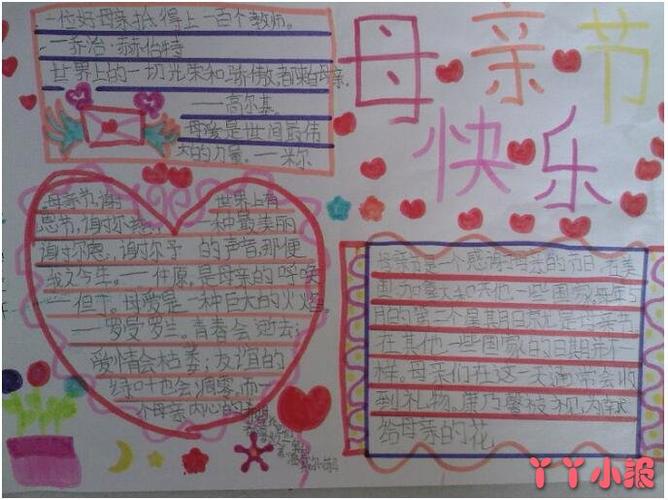 母亲节
快乐
一位好母亲抵得上一百个教师。
—乔治·赫伯特
世界上的一切光荣和骄傲,都来自母亲.
——高尔基.
母爱是世间最伟
大的力量.——米尔
世界上有
一种最美丽
的声音,那便
是母亲的呼唤
——但丁.母爱是一种巨大的火焰.
——罗曼罗兰.青春会逝去;
爱情会枯萎;友谊的
绿叶也会凋零.而一
个母亲内心的
母亲节是一个感谢母亲的节日.在美
国.加拿大和其他一些国家.每年5
月的第二个星期日就是母亲节
在其他一些国家的日期并不一
样.母亲们在这一天通常会收
到礼物.康乃馨被视为献
给母亲的花
丫丫小报